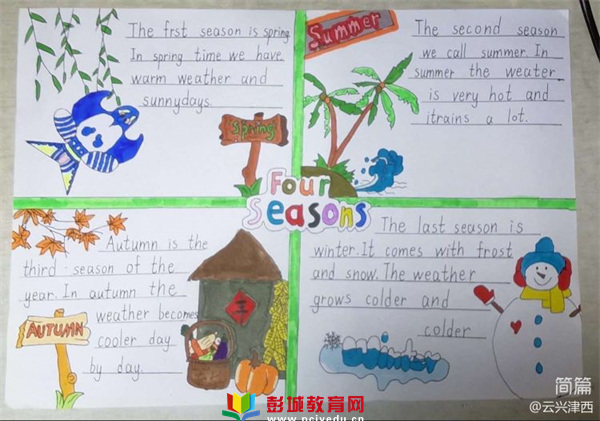 The frst season is spring
In spring time we have
warm weather and
sunnydays.
Spring
Summer
The second season
we call summer. In
summer the weater
is very hot and
itrains a lot.
Four
Seasons
Autumn is the
third season of the
year. In autumn the
weather becomes
cooler day
by day.
AUTUMN
王
The last season is
winter. It comes with frost
and snow. The weather
grows colder and
colder
Winter
简篇
@云兴津西
彭城教育网
www.pcjyedu.cn